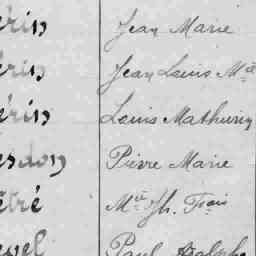 rin Jean Marie
rin Jean Louis Mie
rin Louis Mathurin
sdon Pierre Marie
tré Mie Jh. Frois
uel Paul Adolphe